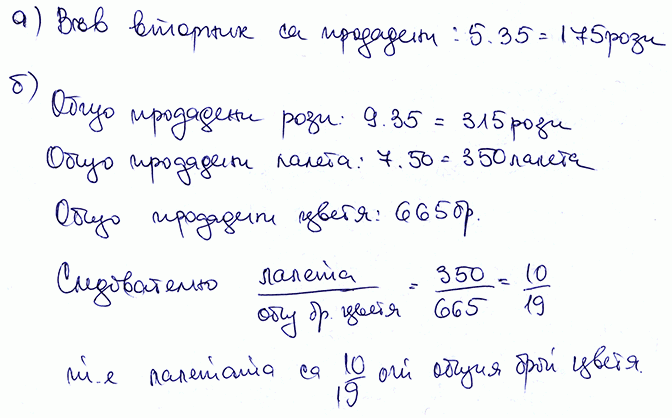 а) Във вторник са продадени : 5.35 = 175 рози
б)
Общо продадени рози: 9.35 = 315 рози
Общо продадени лалета: 7.50 = 350 лалета
Общо продадени цветя: 665 бр.
Следователно лалета / общ бр. цветя = 350 / 665 = 10 / 19
т.е лалетата са 10/19 от общия брой цветя.